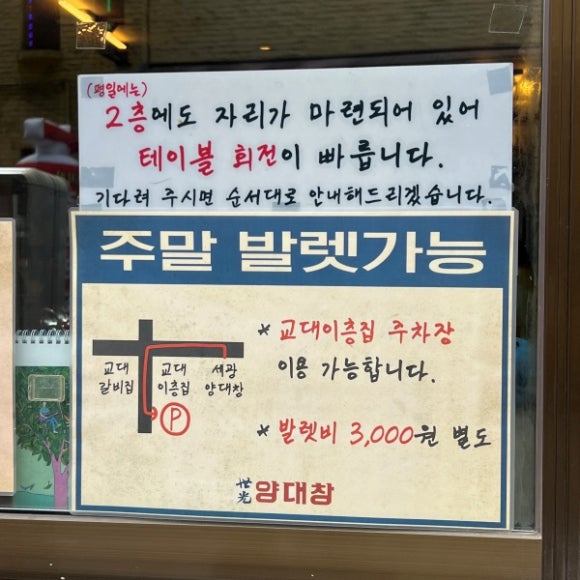 (평일에는)
2층에도 자리가 마련되어 있어
테이블 회전이 빠릅니다.
기다려 주시면 순서대로 안내해드리겠습니다.
주말 발렛가능
교대 갈비집
교대 이층집
세광 양대창
P
* 교대이층집 주차장
이용 가능합니다.
* 발렛비 3,000원 별도
世光 양대창